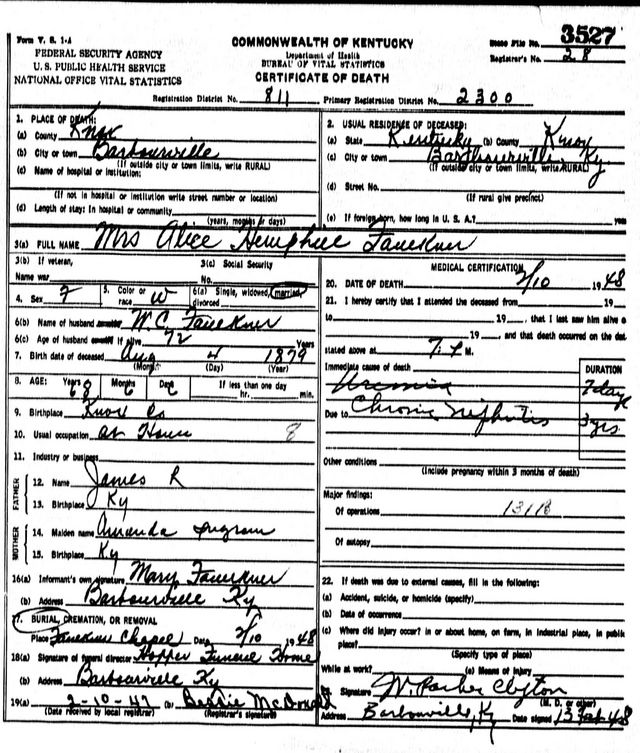 Form V. S. 1-A
FEDERAL SECURITY AGENCY
U. S. PUBLIC HEALTH SERVICE
NATIONAL OFFICE VITAL STATISTICS
COMMONWEALTH OF KENTUCKY
Department of Health
BUREAU OF VITAL STATISTICS
CERTIFICATE OF DEATH
File No. 3527
Registrar's No. 28
Registration District No. 811 Primary Registration District No. 2300
1. PLACE OF DEATH:
(a) County Knox
(b) City or town Barbourville
(If outside city or town limits, write RURAL)
(c) Name of hospital or institution:
(If not in hospital or institution write street number or location)
(d) Length of stay: In hospital or community
(years, months or days)
2. USUAL RESIDENCE OF DECEASED:
(a) State Kentucky (b) County Knox
(c) City or town Barbourville, Ky
(If outside city or town limits, write RURAL)
(d) Street No.
(If rural give precinct)
(e) If foreign born, how long in U. S. A.? years
3(a) FULL NAME Mrs Alice Hemphill Faulkner
3(b) If veteran,
Name war
3(c) Social Security
No.
4. Sex F 5. Color or race W 6(a) Single, widowed, married, divorced
6(b) Name of husband W. C. Faulkner
6(c) Age of husband if alive 72 Years
7. Birth date of deceased Aug 4 1879
(Month) (Day) (Year)
8. AGE: Years 68 Months 6 Days 6 If less than one day hr. min.
9. Birthplace Knox Co
10. Usual occupation at Home 8
11. Industry or business
FATHER
12. Name James R
13. Birthplace Ky
MOTHER
14. Maiden name Amanda Ingram
15. Birthplace Ky
16(a) Informant's own signature Mary Faulkner
(b) Address Barbourville Ky
17. BURIAL, CREMATION, OR REMOVAL
Place Faulkner Chapel Date 2/10 1948
18(a) Signature of funeral director Hopper Funeral Home
(b) Address Barbourville Ky
19(a) 2-10-47 (b) Bessie McDonald
(Date received by local registrar) (Registrar's signature)
MEDICAL CERTIFICATION
20. DATE OF DEATH 2/10 1948
21. I hereby certify that I attended the deceased from 19
to 19, that I last saw him alive o
19, and that death occurred on the dat
stated above at M.
Immediate cause of death DURATION
Uremia 7 days
Due to Chronic Nephritis 3 yrs
Other conditions
(Include pregnancy within 3 months of death)
Major findings:
Of operations 131B
Of autopsy
22. If death was due to external causes, fill in the following:
(a) Accident, suicide, or homicide (specify)
(b) Date of occurrence
(c) Where did injury occur? in or about home, on farm, in industrial place, in public
place?
(Specify type of place)
While at work? (e) Means of injury
Signature W. Parker Clayton
(M. D. or other)
Address Barbourville, Ky Date signed 13 Feb 48